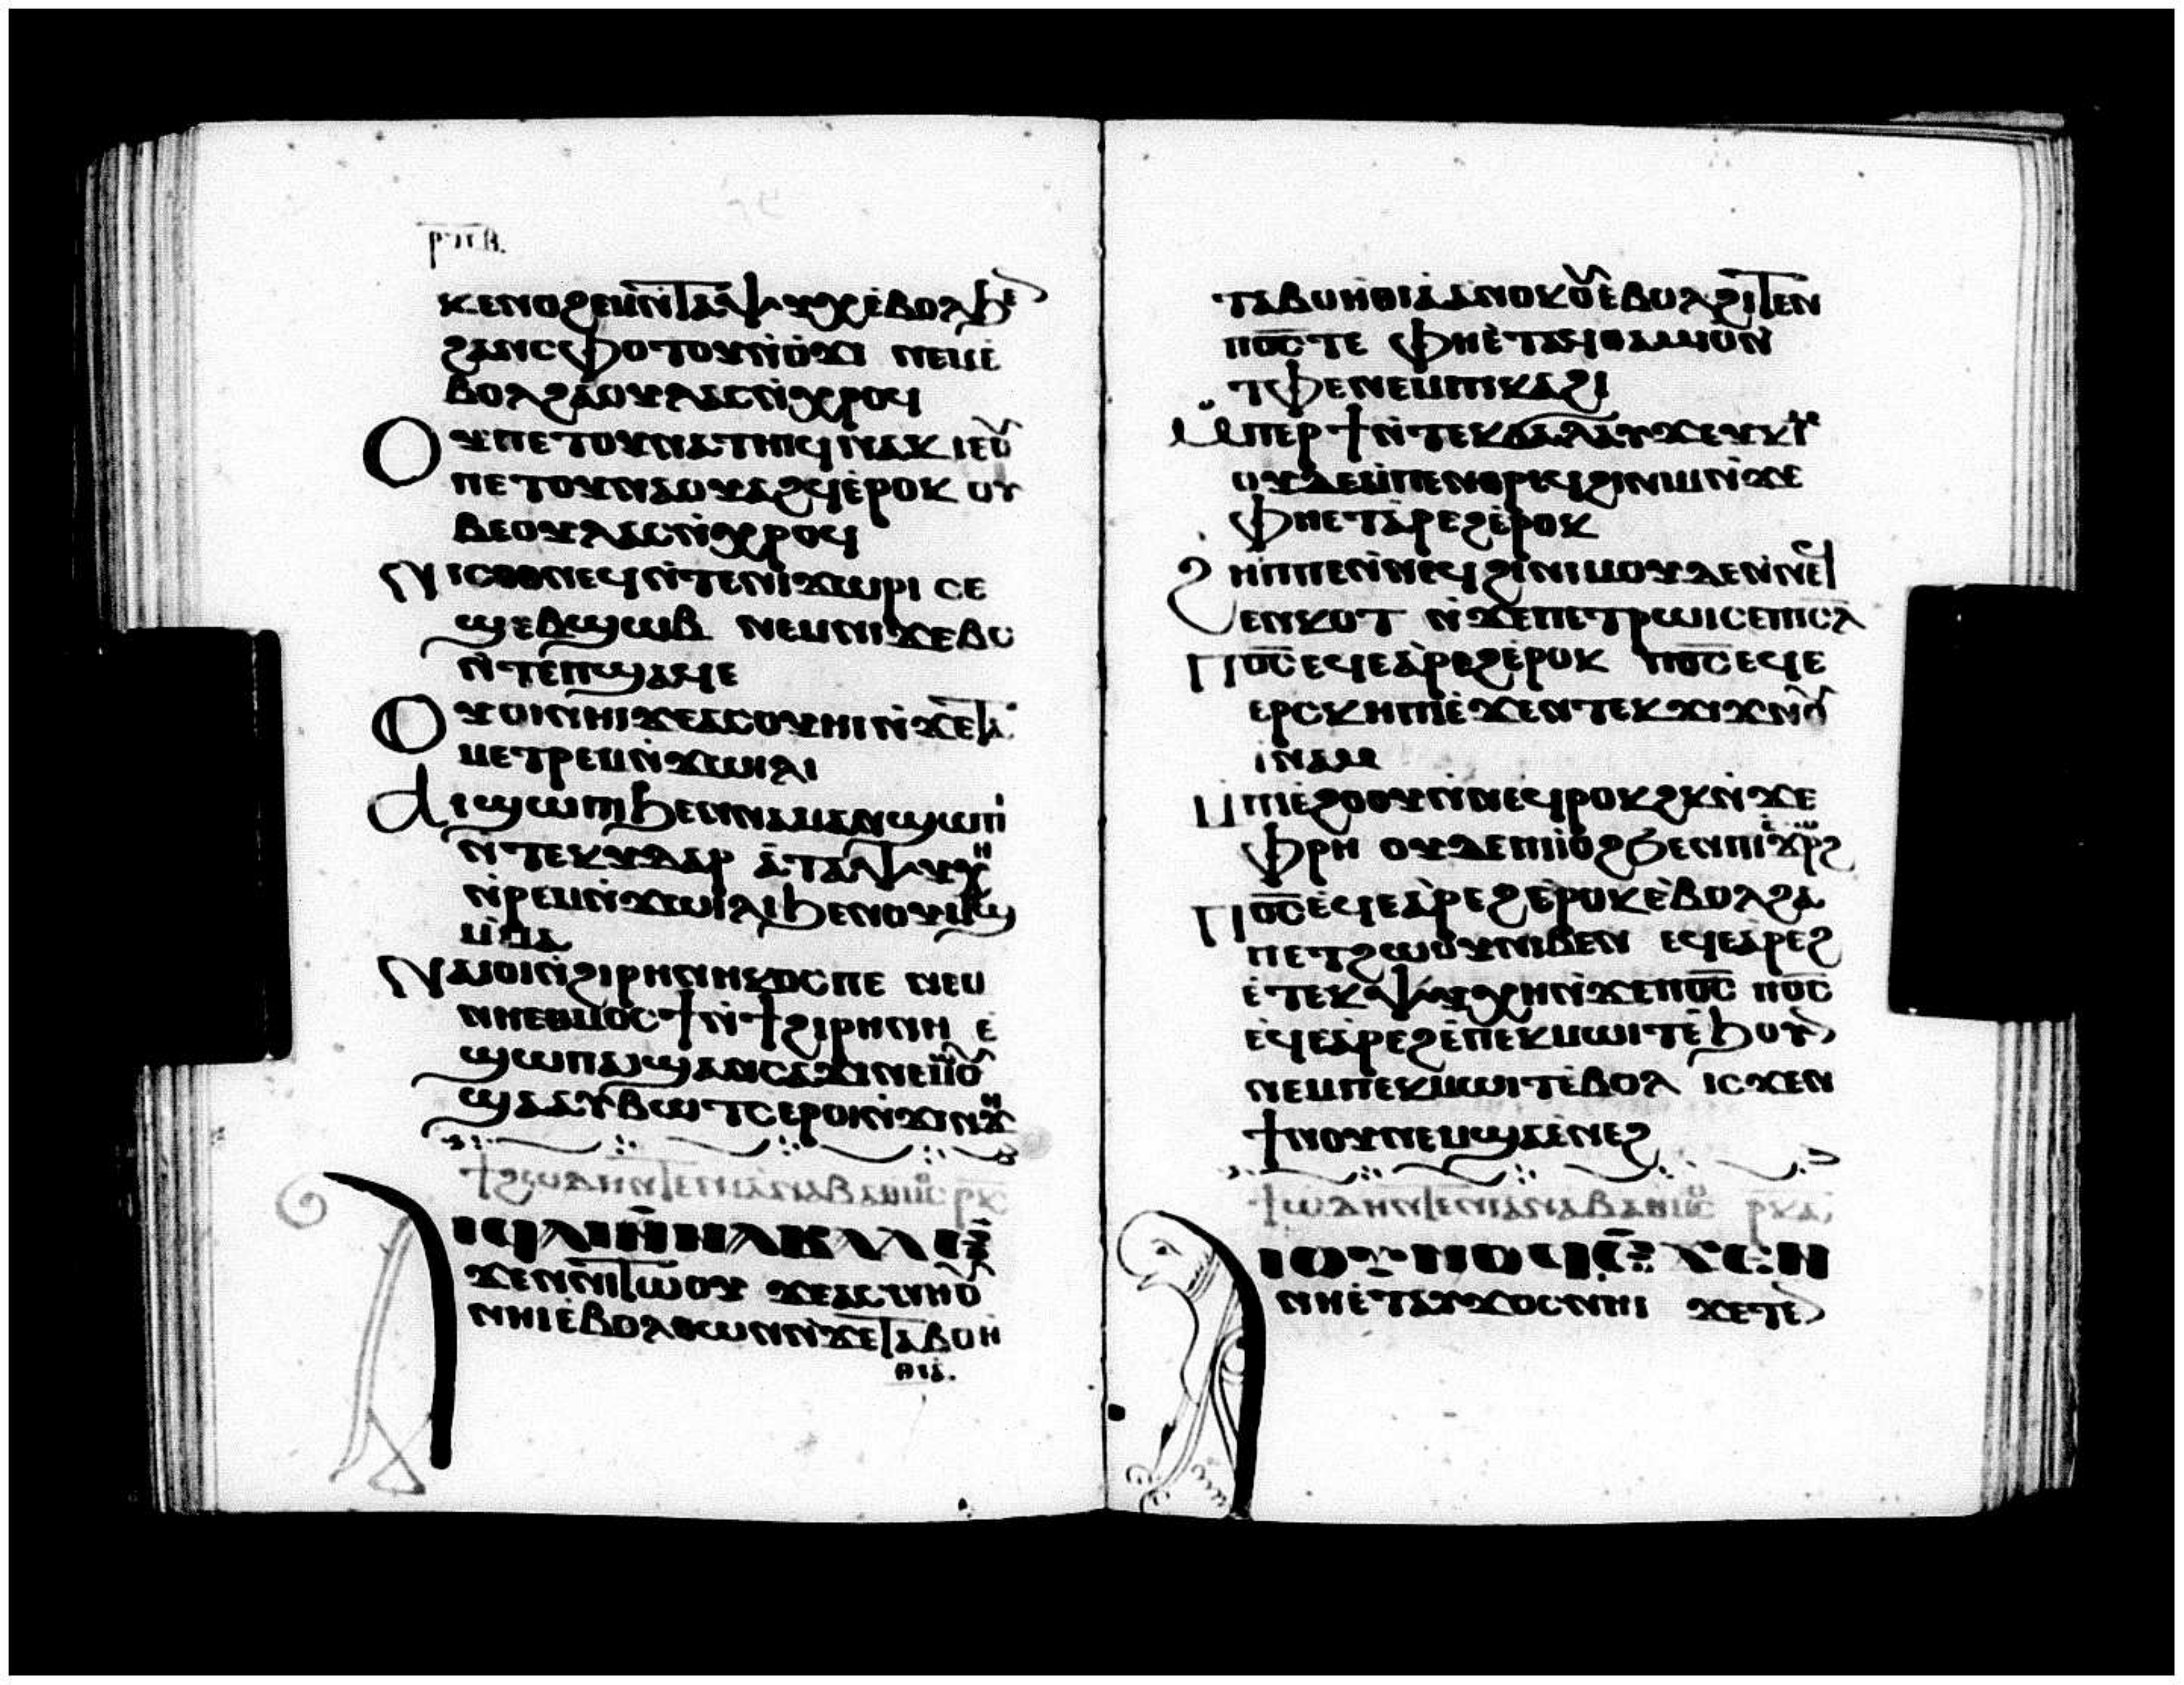 ⲣϥⲃ
ⲕⲉⲛⲟϩⲉⲙⲛ̀ⲧⲁⲯⲩⲭⲉ̀ⲃⲟⲗϧⲉ
ϩⲁⲛⲥⲫⲟⲧⲟⲩⲛ̀ⲟ̀ϫⲓ ⲛⲉⲙⲉ̀
ⲃⲟⲗϩⲁⲟⲩⲗⲁⲥⲛ̀ⲭⲣⲟϥ
Ⲟⲩⲡⲉⲧⲟⲩⲛⲁⲧⲏⲓϥⲛⲁⲕ ⲓⲉⲟⲩ
ⲡⲉⲧⲟⲩⲛⲁⲟⲩⲁϩϥⲉ̀ⲣⲟⲕ ⲟⲩ
ⲃⲉⲟⲩⲗⲁⲥⲛ̀ⲭⲣⲟϥ
Ⲛⲓⲥⲟⲑⲛⲉϥⲛ̀ⲧⲉⲛⲓϫⲱⲣⲓ ⲥⲉ
ϣⲉⲃϣⲱⲃ ⲛⲉⲙⲛⲓϫⲉⲃⲥ
ⲛ̀ⲧⲉⲡϣⲁϥⲉ
Ⲟⲩⲟⲓⲛⲏⲓϫⲉⲁⲥⲟⲩⲏⲓⲛ̀ϫⲉⲧⲁ
ⲙⲉⲧⲣⲉⲙⲛ̀ϫⲱⲓⲗⲓ
Ⲁⲓϣⲱⲡⲓϧⲉⲛⲛⲓⲙⲁⲛϣⲱⲡⲓ
ⲛ̀ⲧⲉⲕⲩⲇⲁⲣ ⲁ̀ⲧⲁⲯⲩⲭⲏ
ⲛ̀ⲣⲉⲙⲛ̀ϫⲱⲓⲗⲓϧⲉⲛⲟⲩⲙⲏϣ
ⲙ̀ⲙⲁ
Ⲛⲁⲓⲟⲓⲛ̀ϩⲓⲣⲏⲛⲏⲕⲟⲥⲡⲉ ⲛⲉⲙ
ⲛⲏⲉⲑⲙⲟⲥϯⲛ̀ϯϩⲓⲣⲏⲛⲏ ⲉ̀
ϣⲱⲡⲁⲓϣⲁⲛⲥⲁϫⲓⲛⲉⲙⲱⲟⲩ
ϣⲁⲩⲃⲱⲧⲥⲉⲣⲟⲓⲛ̀ϫⲓⲛϫⲏ
ϯϩⲱⲇⲏⲛ̀ⲧⲉⲛⲓⲁⲛⲁⲃⲁⲑⲙⲟⲥ ⲣⲕ
Ⲁⲓϥⲁⲓⲛ̀ⲛⲁⲃⲁⲗⲉ̀
ϫⲉⲛⲛⲓⲧⲱⲟⲩ ϫⲉⲁⲥⲛⲏⲟⲩ
ⲛⲏⲓⲉ̀ⲃⲟⲗⲑⲱⲛⲛ̀ϫⲉⲧⲁⲃⲟⲏ
ⲑⲓⲁ
ⲧⲁⲃⲟⲏⲑⲓⲁⲁⲛⲟⲕⲟⲩⲉ̀ⲃⲟⲗϩⲓⲧⲉⲛ
ⲡⲟ̅ⲥ̅ⲧⲉ ⲫⲏⲉ̀ⲧⲁϥⲑⲁⲙⲓⲟⲛ
ⲧⲫⲉⲛⲉⲙⲡⲓⲕⲁϩⲓ
Ⲙⲡⲉⲣϯⲛ̀ⲧⲉⲕϭⲁⲗⲁⲩϫⲉⲩⲕⲓⲙ
ⲟⲩⲇⲉⲙ̀ⲡⲉⲛⲑⲣⲉϥϩⲓⲛⲓⲙⲛ̀ϫⲉ
ⲫⲏⲉⲧⲁ̀ⲣⲉϩⲉ̀ⲣⲟⲕ
Ϩⲏⲡⲡⲉⲛ̀ⲛⲉϥϩⲓⲛⲓⲙⲟⲩⲇⲉⲛ̀ⲛⲉϥ
ⲉⲛⲕⲟⲧ ⲛ̀ϫⲉⲡⲉⲧⲣⲱⲓⲥⲉⲡⲓⲥⲗ
Ⲡⲟ̅ⲥ̅ⲉϥⲉⲁ̀ⲣⲉϩⲉ̀ⲣⲟⲕ ⲡⲟ̅ⲥ̅ⲉϥⲉ
ⲉⲣⲥⲕⲏⲡⲓⲉ̀ϫⲉⲛⲧⲉⲕϫⲓϫⲛ̀ⲟⲩ
ⲓ̀ⲛⲁⲙ
Ⲙⲡⲓⲉ̀ϩⲟⲟⲩⲛ̀ⲛⲉϥⲣⲟⲕϩⲕⲛ̀ϫⲉ
ⲫⲣⲏ ⲟⲩⲇⲉⲡⲓⲓⲟϩϧⲉⲛⲡⲓⲉ̀ϫⲱⲣϩ
Ⲡⲟ̅ⲥ̅ⲉ̀ϥⲉⲁ̀ⲣⲉϩⲉ̀ⲣⲟⲕⲉ̀ⲃⲟⲗϩⲁ
ⲡⲉⲧϩⲱⲟⲩⲛⲓⲃⲉⲛ ⲉϥⲉⲁ̀ⲣⲉϩ
ⲉ̀ⲧⲉⲕⲯⲩⲭⲏⲛ̀ϫⲉⲡⲟ̅ⲥ̅ ⲡⲟ̅ⲥ̅
ⲉϥⲉⲁ̀ⲣⲉϩⲉ̀ⲡⲉⲕⲙⲱⲓⲧⲉ̀ϧⲟⲩⲛ
ⲛⲉⲙⲡⲉⲕⲙⲱⲓⲧⲉ̀ⲃⲟⲗ ⲓⲥϫⲉⲛ
ϯⲛⲟⲩⲛⲉⲙϣⲁⲉ̀ⲛⲉϩ
ϯⲱⲇⲏⲛ̀ⲧⲉⲛⲓⲁⲛⲁⲃⲁⲑⲙⲟⲥ ⲣⲕⲁ
Ⲁⲓⲟⲩⲛⲟϥⲉ̀ϫⲉⲛ
ⲛⲏⲉ̀ⲧⲁⲩϫⲟⲥⲛⲏⲓ ϫⲉⲧⲉⲛ